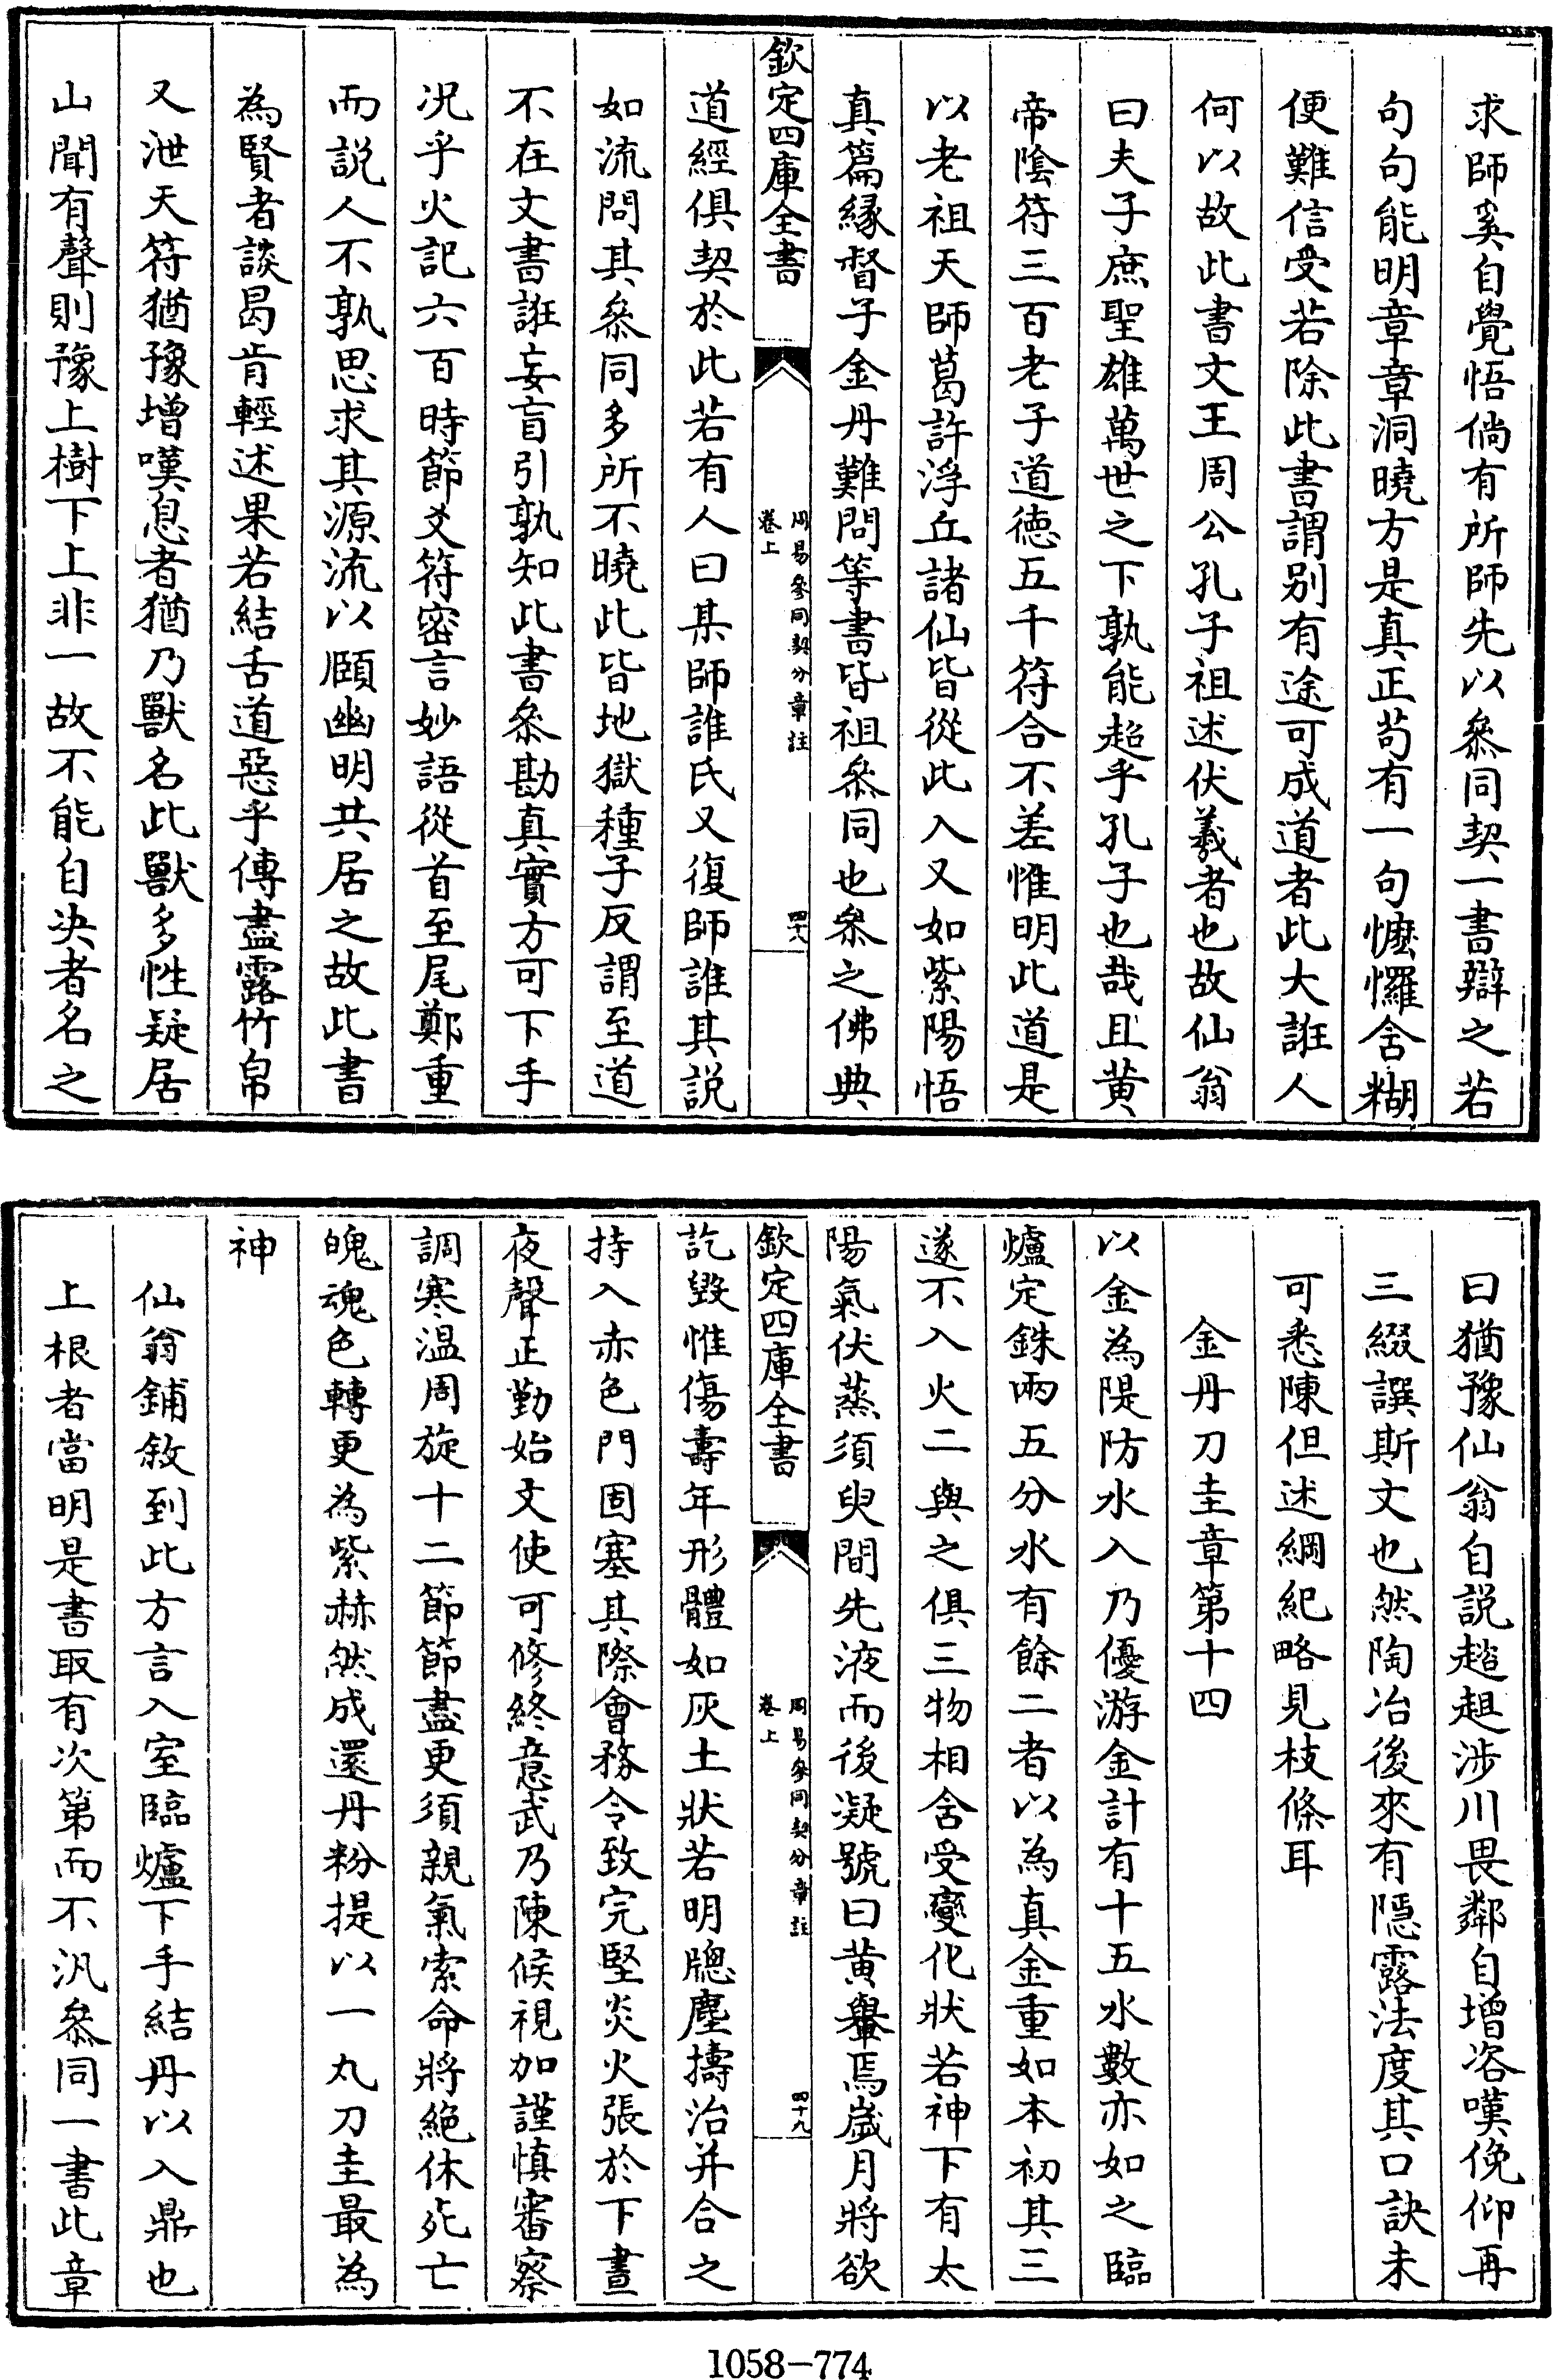 求師奚自覺悟倘有所師先以叅同契一書辯之若
句句能明章章洞曉方是真正茍有一句㦄㦬含糊
便難信受若除此書謂别有途可成道者此大誑人
何以故此書文王周公孔子祖述伏羲者也故仙翁
曰夫子庶聖雄萬世之下孰能超乎孔子也哉且黄
帝隂符三百老子道德五千符合不差惟明此道是
以老祖天師葛許浮丘諸仙皆從此入又如紫陽悟
真篇緣督子金丹難問等書皆祖叅同也叅之佛典
欽定四庫全書
周易參同契分章註
卷上
四十八
道經俱契於此若有人曰某師誰氏又復師誰其説
如流問其叅同多所不曉此皆地獄種子反謂至道
不在文書誑妄盲引孰知此書叅勘真實方可下手
况乎火記六百時節爻符密言妙語從首至尾鄭重
而説人不孰思求其源流以頤幽明共居之故此書
為賢者談曷肯輕述果若結舌道惡乎傳盡露竹帛
又泄天符猶豫增嘆息者猶乃獸名此獸多性疑居
山聞有聲則豫上樹下上非一故不能自决者名之
曰猶豫仙翁自説趦趄涉川畏鄰自增咨嘆俛仰再
三綴譔斯文也然陶冶後來有隱露法度其口訣未
可悉陳但述綱紀略見枝條耳
金丹刀圭章第十四
以金為隄防水入乃優游金計有十五水數亦如之臨
爐定銖兩五分水有餘二者以為真金重如本初其三
遂不入火二與之俱三物相含受變化狀若神下有太
陽氣伏蒸須臾間先液而後凝號曰黄轝焉歲月將欲
欽定四庫全書
周易參同契分章註
卷上
四十九
訖毁惟傷壽年形體如灰土狀若明牕塵擣治并合之
持入赤色門固塞其際會務令致完堅炎火張於下晝
夜聲正勤始文使可修終意武乃陳候視加謹慎審察
調寒温周旋十二節節盡更須親氣索命將絶休死亡
魄魂色轉更為紫赫然成還丹粉提以一丸刀圭最為
神
仙翁鋪敘到此方言入室臨爐下手結丹以入鼎也
上根者當明是書取有次第而不汎叅同一書此章
1058-774